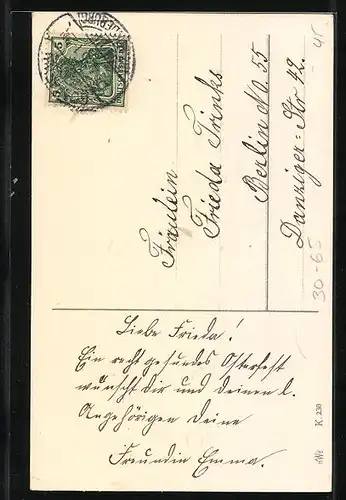 Fräulein
Frieda Trinks
Berlin NO. 55
Danziger-Str 42.
Liebe Frieda!
Ein recht gesundes Osterfest
wünscht dir und deinen l.
Angehörigen deine
Freundin Emma.
K 230
30-65